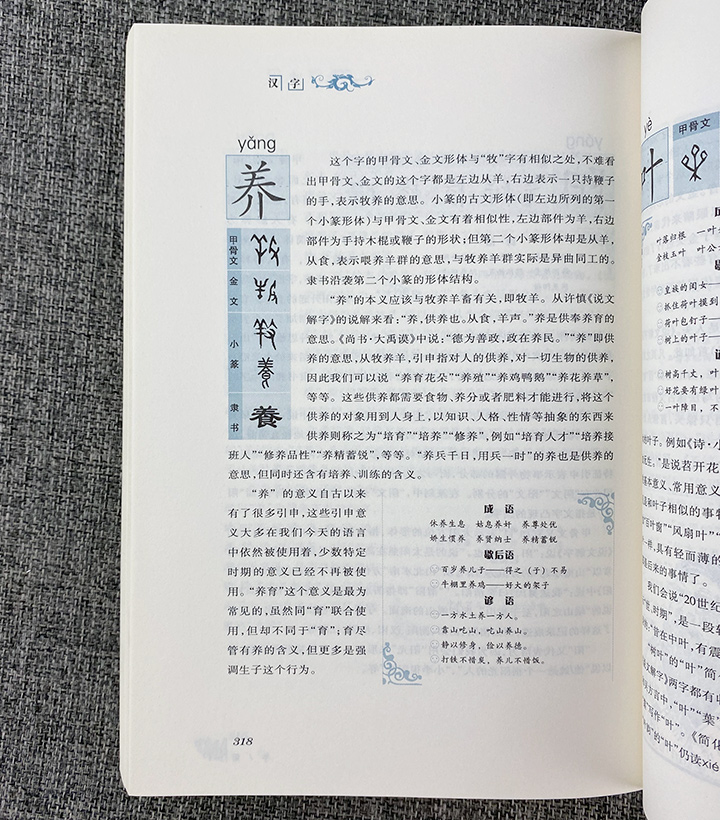 汉字
yǎng
养
甲骨文
金文
小篆
隶书
養
这个字的甲骨文、金文形体与“牧”字有相似之处，不难看
出甲骨文、金文的这个字都是左边从羊，右边表示一只持鞭子
的手，表示牧养的意思。小篆的古文形体（即左边所列的第一
个小篆形体）与甲骨文、金文有着相似性，左边部件为羊，右边
部件为手持木棍或鞭子的形状；但第二个小篆形体却是从羊，
从食，表示喂养羊群的意思，与牧养羊群实际是异曲同工的。
隶书沿袭第二个小篆的形体结构。
“养”的本义应该与牧养羊畜有关，即牧羊。从许慎《说文
解字》的说解来看：“养，供养也。从食，羊声。”养是供奉养育的
意思。《尚书·大禹谟》中说：“德为善政，政在养民。”“养”即供
养的意思，从牧养羊，引申指对人的供养，对一切生物的供养，
因此我们可以说“养育花朵”“养殖”“养鸡鸭鹅”“养花养草”，
等等。这些供养都需要食物、养分或者肥料才能进行，将这个
供养的对象用到人身上，以知识、人格、性情等抽象的东西来
供养则称之为“培育”“培养”“修养”，例如“培育人才”“培养接
班人”“修养品性”“养精蓄锐”，等等。“养兵千日，用兵一时”的养也是供养的
意思，但同时还含有培养、训练的含义。
“养”的意义自古以来
有了很多引申，这些引申意
义大多在我们今天的语言
中依然被使用着，少数特定
时期的意义已经不再被使
用。“养育”这个意义是最为
常见的，虽然同“育”联合使
用，但却不同于“育”；育尽
管有养的含义，但更多是强
调生子这个行为。
成语
休养生息 姑息养奸 养尊处优
娇生惯养 养贤纳士 养精蓄锐
歇后语
百岁养儿子——得之（子）不易
牛棚里养鸡——好大的架子
谚语
一方水土养一方人。
靠山吃山，吃山养山。
静以修身，俭以养德。
打铁不惜炭，养儿不惜饭。
318
yè
叶
甲骨文
叶落归根 一叶
金枝玉叶 叶公
皇族的闺女——
抓住荷叶摸到
荷叶包钉子——
树上的叶子——
树高千丈，叶
好花要有绿叶
一叶障目，不
的叶子。例如《诗·小
”是说苕开花
基本意义、常用意义
是和叶子相似的事物
“百叶窗”“风扇叶”“
一样，具有轻而薄的
是后来的事情了。
我们会说“20世纪
时期”，是一段
“昔在中叶，有震
“树叶”的“叶”简
文解字》两字都有收
方言中，“叶”“葉”
写作“叶”。《简化
的“叶”仍读xié